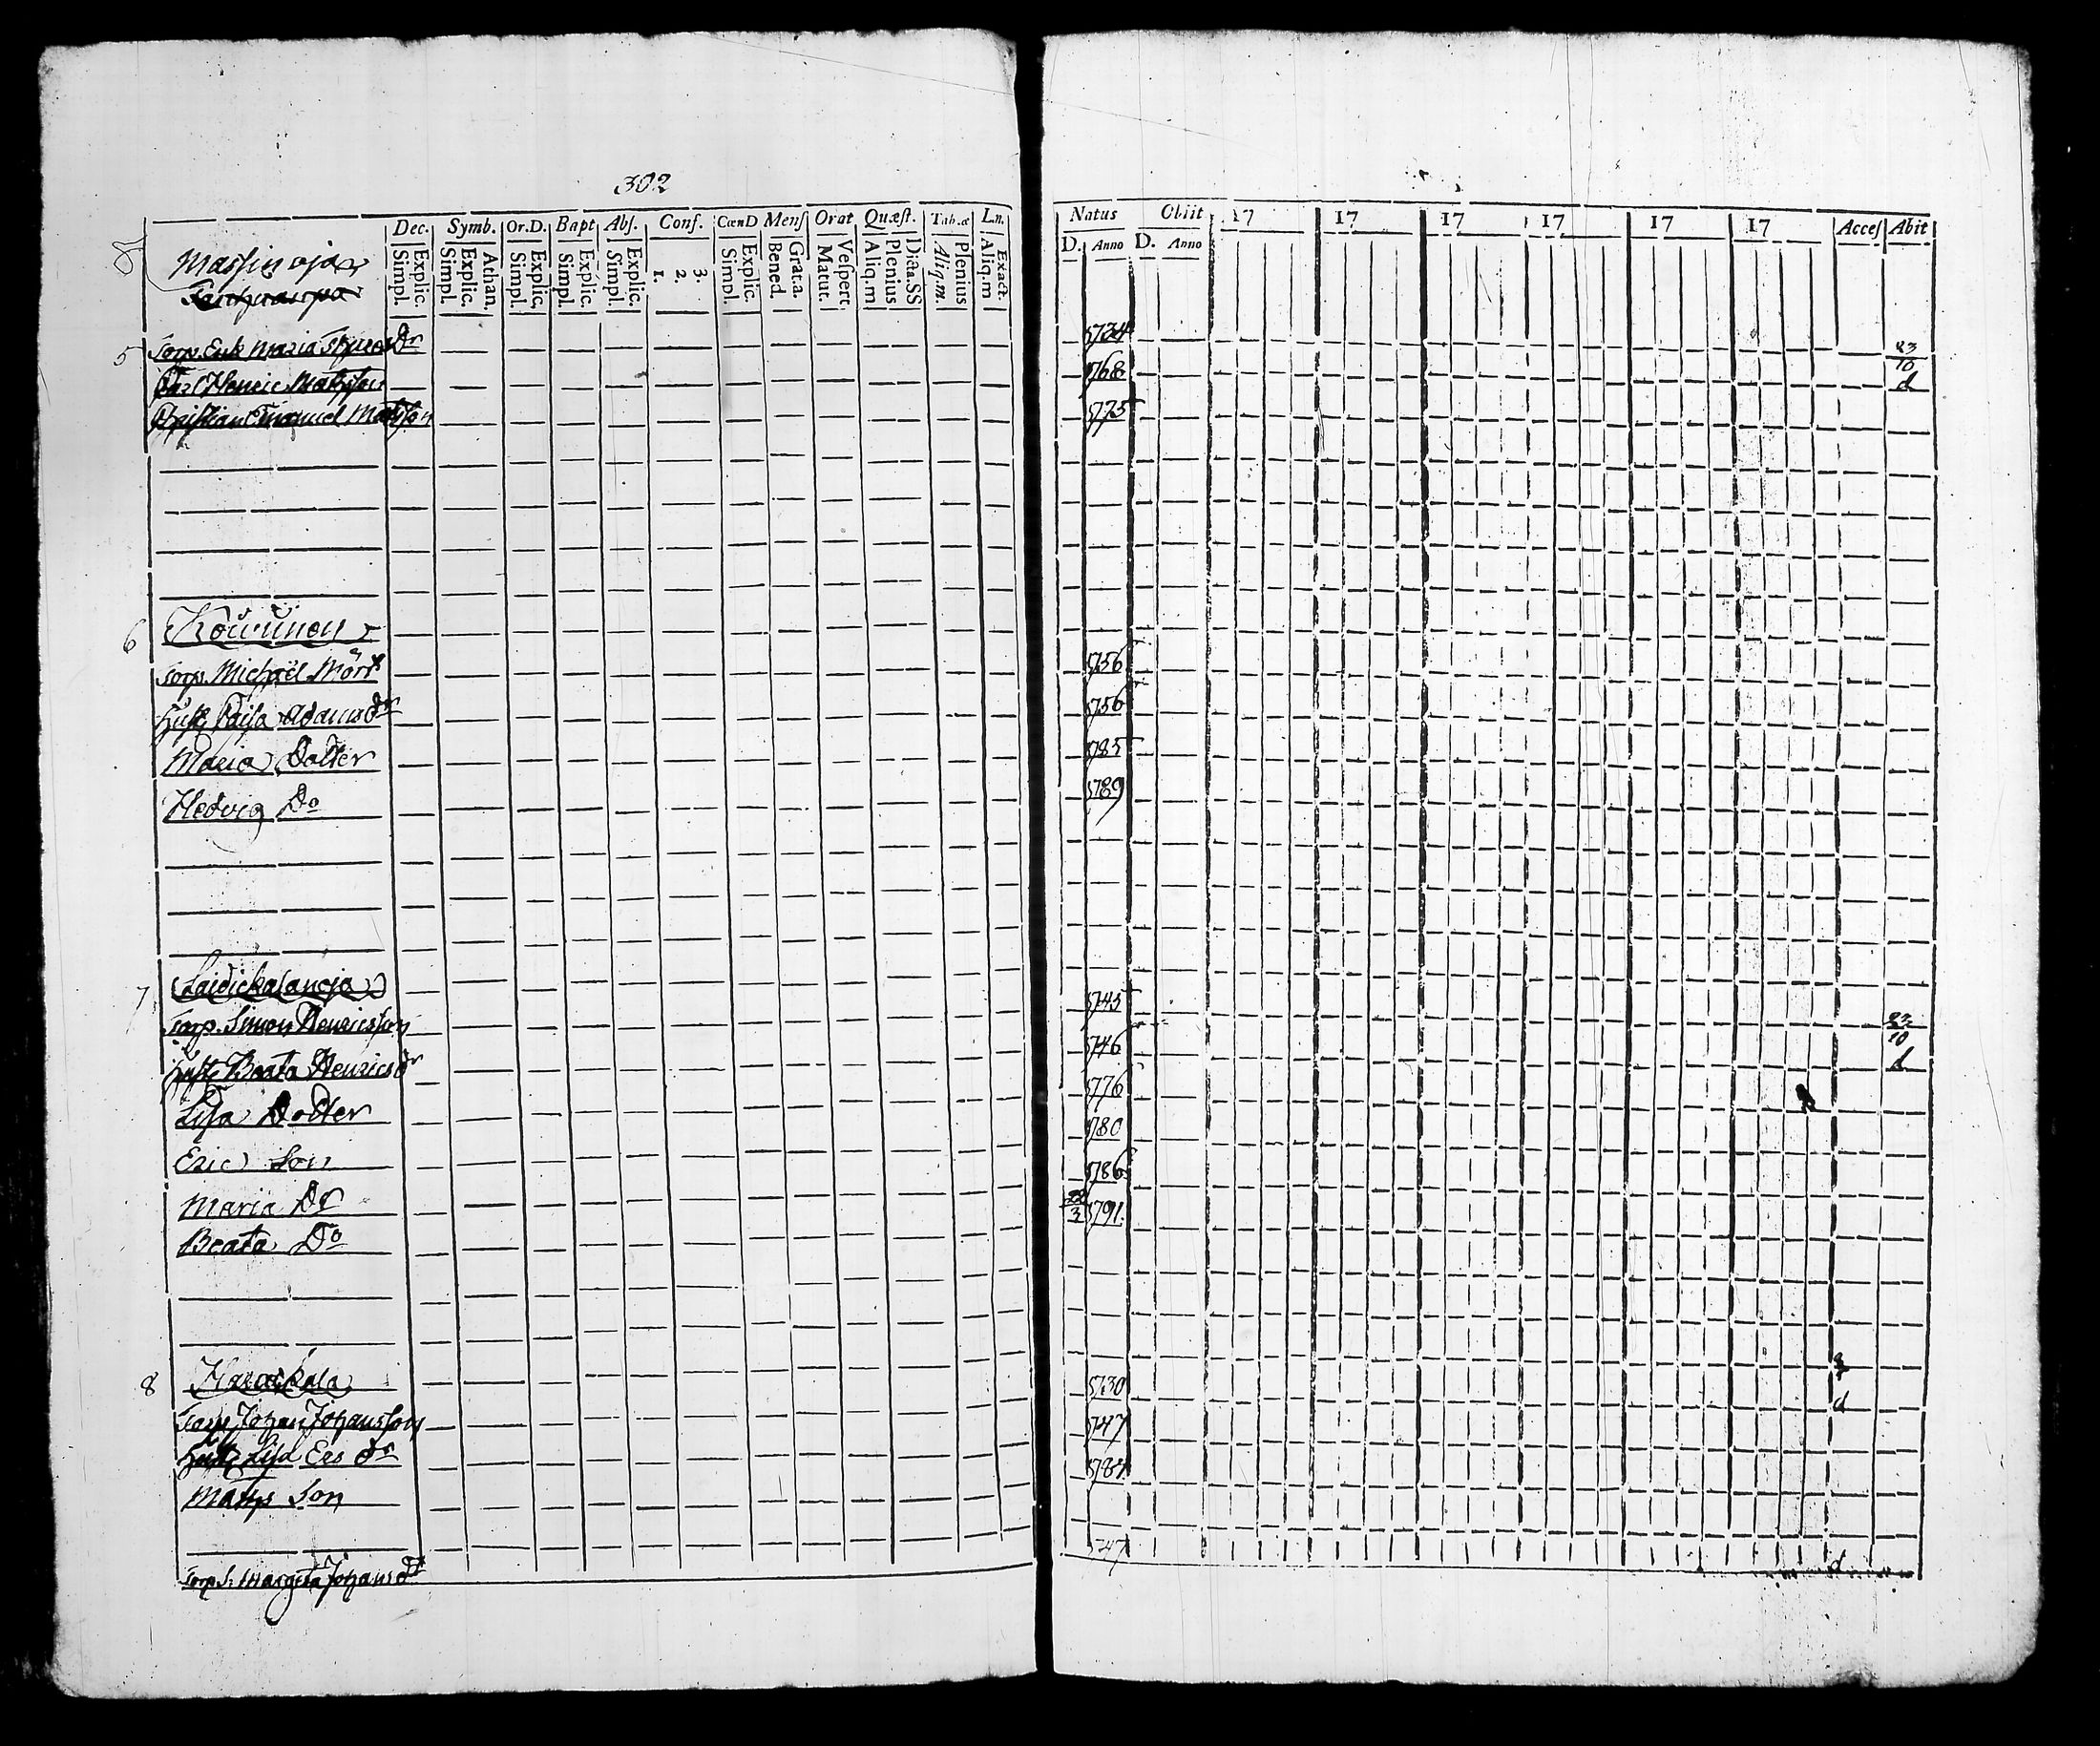 302
Dec. Symb. Or.D. Bapt Abſ. Conf. CœnD Menſ Orat Quæſt. Tab.æ Ln. Natus Obiit 17 17 17 17 17 17 Acceſ Abit
Explic. Simpl. Athan. Explic. Simpl. Explic. Simpl. Explic. Simpl. Explic. Simpl. 3. 2. 1. Explic. Simpl. Gra.a. Bened. Veſpert. Matut. Dicta.SS Plenius Aliq.m Plenius Aliq.m. Exact. Aliq.m D. Anno D. Anno
Massin oja
5 Torp. Enk Maria Dr 1734 23/10
Carl Henric Matsson 1768 d
Christian Emanuel Matsson 1775
6
Torp. Michaël Mörk 1756
Hust. Caisa Adamsdr 1756
Maria Dotter 1785
Hedvig Do 1789
7 Laidickalanoja
Torp. Simon Henricsson 1745 23/10
Hust. Beata Henricsdr 1746 d
Lisa Dotter 1776
Eric Son 1780
Maria Dr 1786
Beata Do 22/3 1791.
8
Torp. Johan Johansson 1730 d
Hust. Lisa Ersdr 1747
Matts Son 1784
Torp. Margeta Johansdr 1747 d